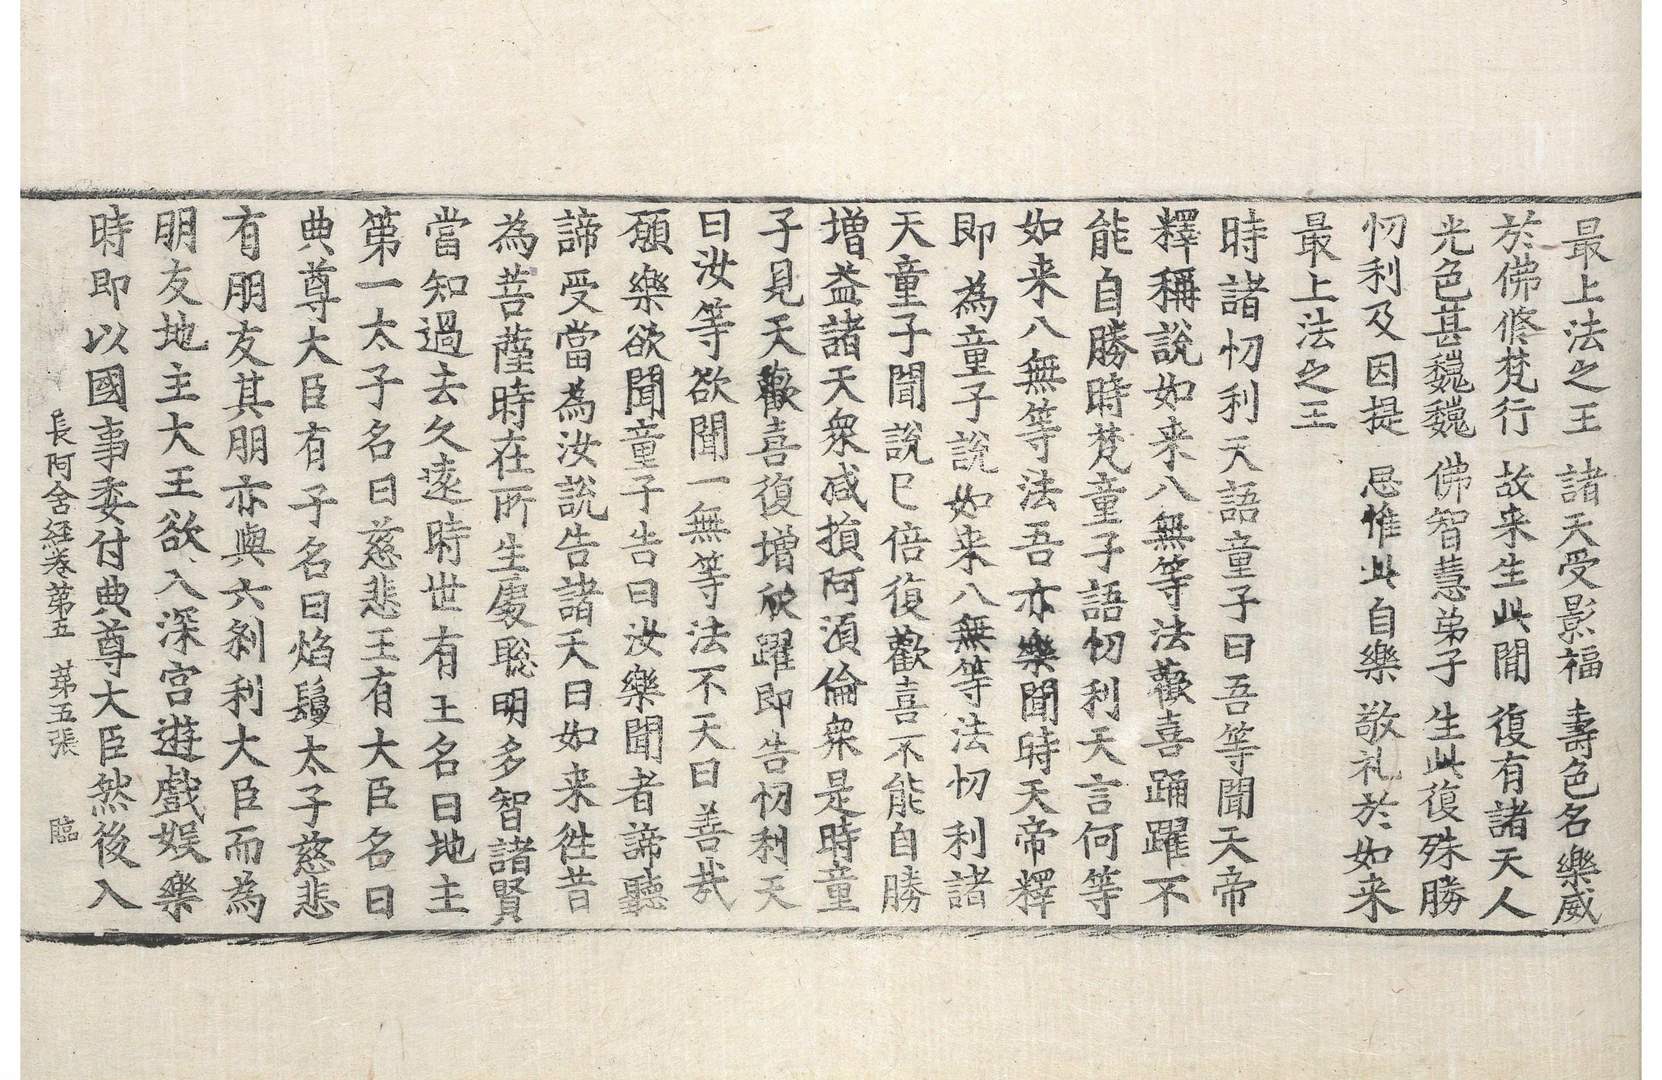 最上法之王　諸天受影福　壽色名樂威
於佛脩梵行　故来生此閒　復有諸天人
光色甚巍巍　佛智慧弟子　生此復殊勝
忉利及因提　思惟此自樂　敬礼於如来
最上法之王
時諸忉利天語童子曰吾等聞天帝
釋稱說如来八無等法歡喜踊躍不
能自勝時梵童子語忉利天言何等
如来八無等法吾亦樂聞時天帝釋
即為童子說如来八無等法忉利諸
天童子聞說已倍復歡喜不能自勝
增益諸天衆减損阿湏倫衆是時童
子見天歡喜復增欣躍即告忉利天
曰汝等欲聞一無等法不天曰善哉
願樂欲聞童子告曰汝樂聞者諦聽
諦受當為汝說告諸天曰如来徃昔
為菩薩時在所生處聡明多智諸賢
當知過去久遠時世有王名曰地主
第一太子名曰慈悲王有大臣名曰
典尊大臣有子名曰焰鬘太子慈悲
有朋友其朋亦與六刹利大臣而為
朋友地主大王欲入深宮遊戲娛樂
時即以國事委付典尊大臣然後入
長阿含經卷第五　第五張　臨